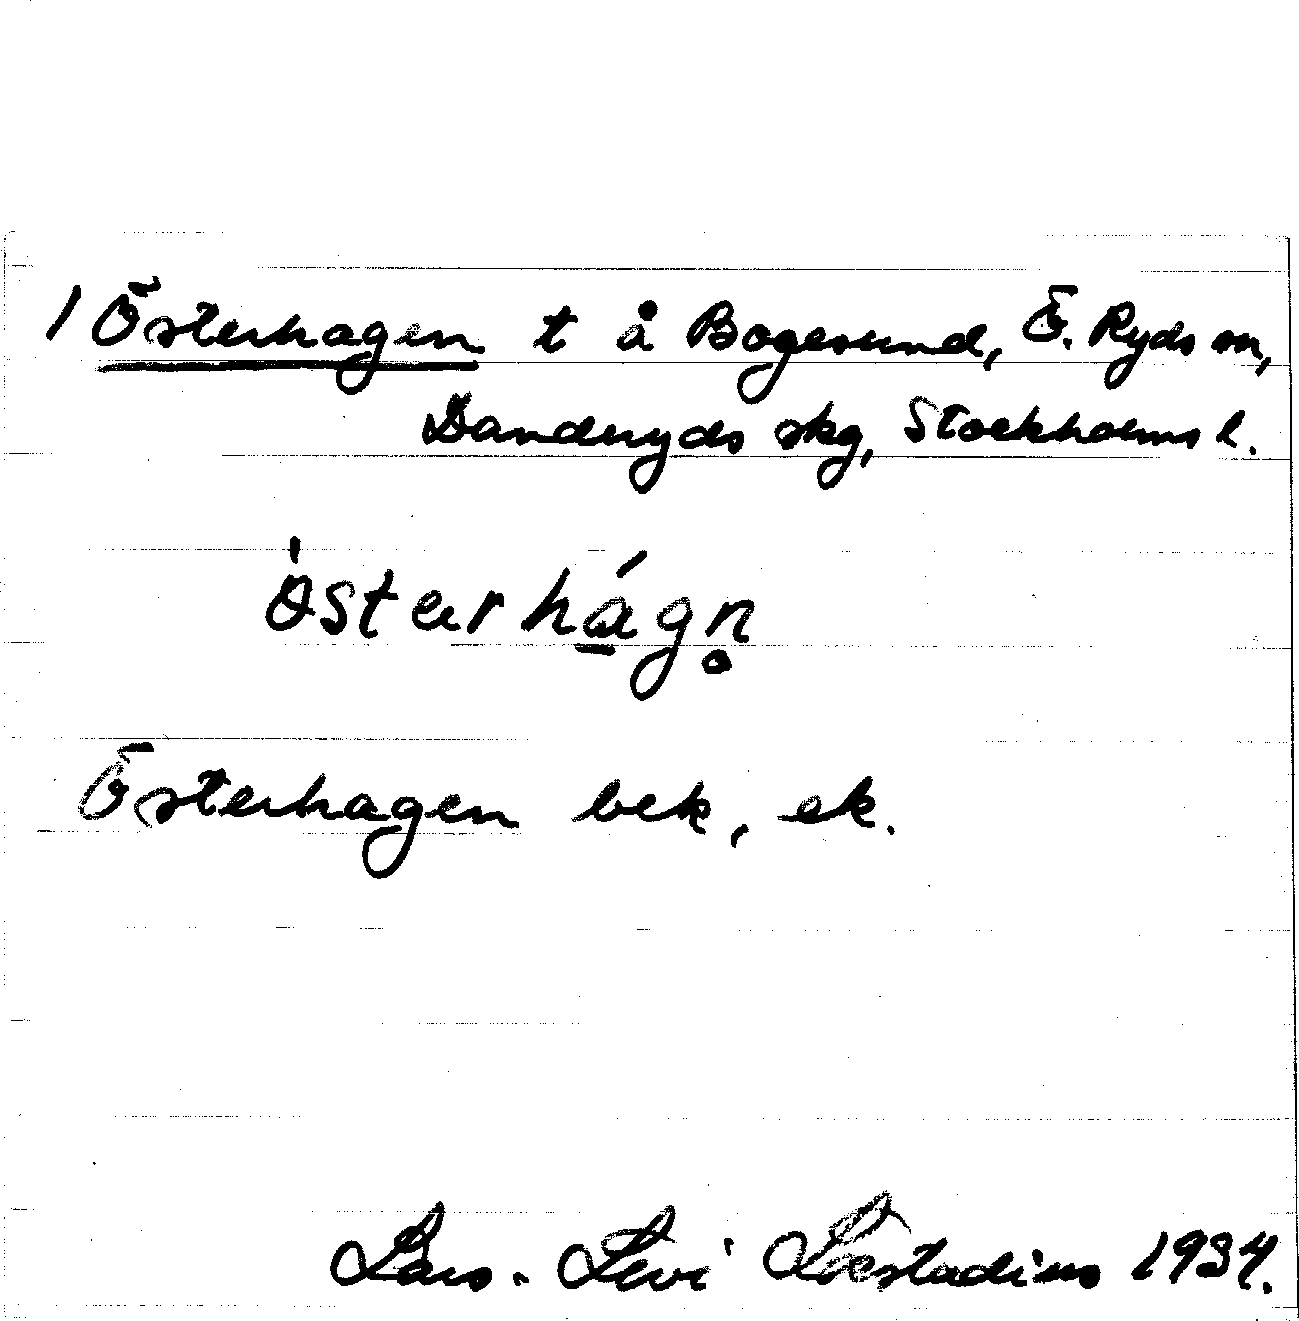 1 Österhagen t å Bogesund, Ö. Ryds sn,
Danderyds skg, Stockholms l.
ö́stərhág̣n̥
Österhagen bek, ek.
Lars-Levi Læstadius 1934.